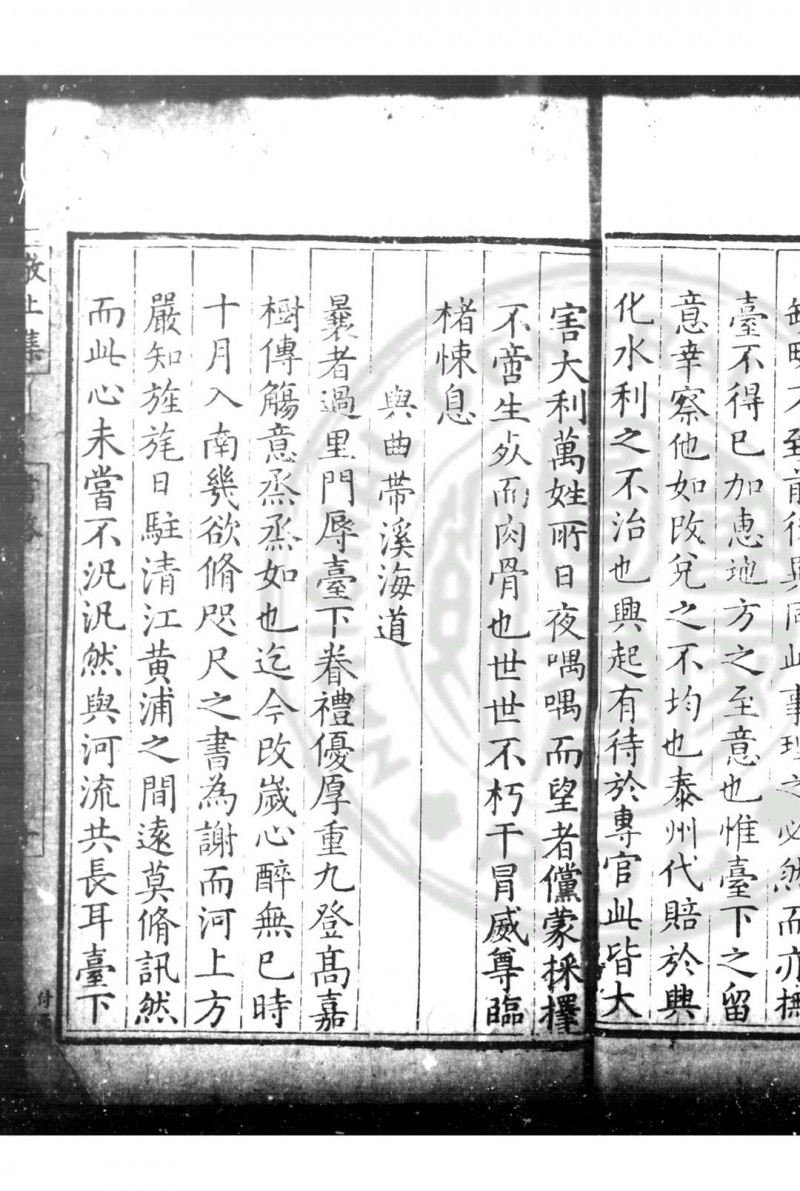 至前後異同此事理之必然而亦撫
臺不得已加惠地方之至意也惟臺下之留
意幸察他如改兌之不均也泰州代賠於興
化水利之不治也興起有待於專官此皆大
害大利萬姓所日夜喁喁而望者儻蒙採擇
不啻生死而肉骨也世世不朽干冒威尊臨
楮悚息
與曲帶溪海道
曩者過里門辱臺下眷禮優厚重九登高嘉
樹傳觴意烝烝如也迄今改歲心醉無已時
十月入南幾欲脩咫尺之書為謝而河上方
嚴知旌旄日駐清江黃浦之間遠莫脩訊然
而此心未嘗不汎汎然與河流共長耳臺下
敬止集